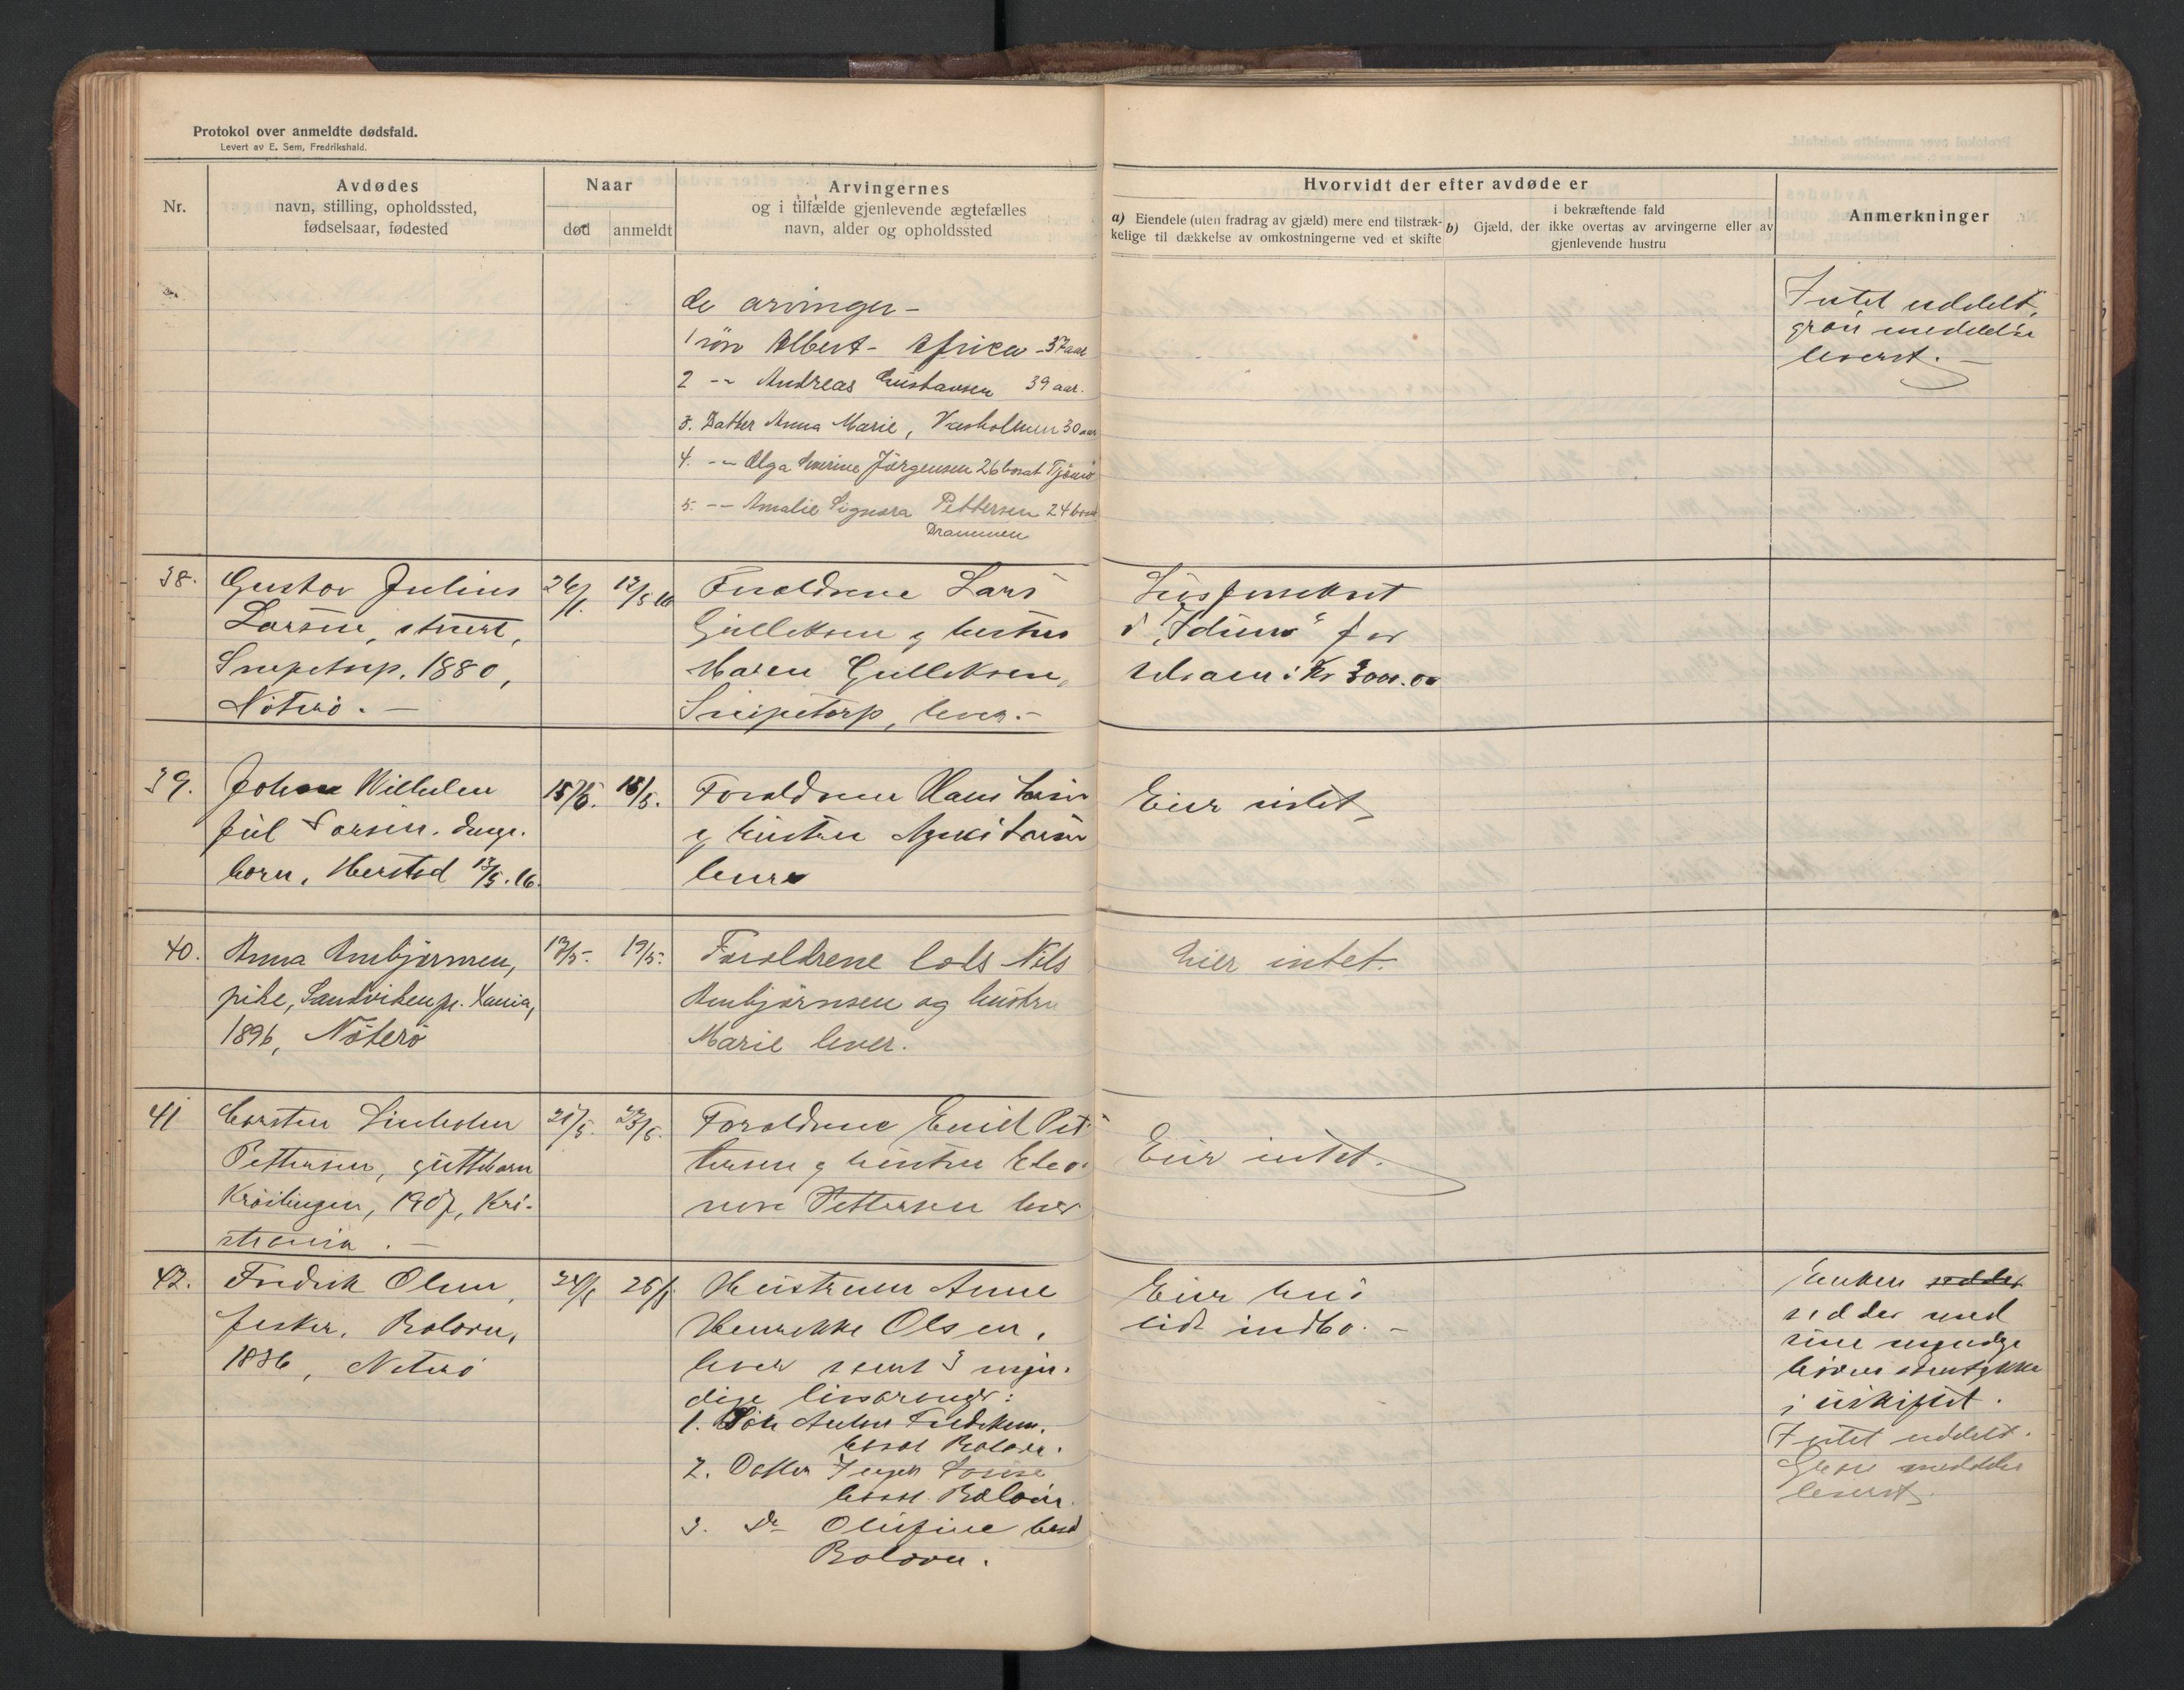 Protokol over anmeldte dødsfald.
Levert av E. Sem, Fredrikshald.
Nr.
Avdødes
navn, stilling, opholdssted,
fødselsaar, fødested
Naar
død
anmeldt
Arvingernes
og i tilfælde gjenlevende ægtefælles
navn, alder og opholdssted
Hvorvidt der efter avdøde er
a) Eiendele (uten fradrag av gjæld) mere end tilstræk-
kelige til dækkelse av omkostningerne ved et skifte
i bekræftende fald
b) Gjæld, der ikke overtas av arvingerne eller av
gjenlevende hustru
Anmerkninger
de arvinger -
1 søn Albert - Africa - 37 aar
2 -"- Andreas Gustavsen 39 aar.
3. Datter Anna Marie, 30 aar
4. -"- Olga Jørgensen 26 bosat Tjømø
5. -"- Amalie Signora Pettersen 24 bosat
Drammen
Intet uddelt,
grøn meddelse
leverst. -
38.
Gustav Julius
Larsen, stuert,
Snipetorp, 1880,
Nøterø. -
26/1.
12/5 16
Foræld­rene Lars
Gulleksen og hustru
Maren Gulleksen,
Snipetorp, lever. -
Livsforsikret
i "Idun" for
Kr 3000.00
39.
Johan Wilhelm
Juel Larsen, drenge-
barn, Herstad 13/5. 16.
15/5.
18/5.
Forældrene Hans Larsen
og hustru Agnes Larsen
lever
Eier intet
40.
Anna Ambjørnsen,
pike, Sandviken pr. Xania,
1896, Nøterø
13/5.
19/5.
Forældrene Nils
Ambjørnsen og hustru
Marie lever.
Eier intet.
41
Carsten Lindholm
Pettersen, guttebarn
1907, Kri-
stiania. -
21/5.
23/5.
Forældrene Emil Pet-
tersen og hustru Eleo-
nore Pettersen lever
Eier intet.
42.
Fredrik Olsen,
fisker, Bolæren,
1836, Nøterø
24/5
26/5
Hustruen Anne
Henrikke Olsen,
lever samt 3 myn-
dige livsarvinger:
1. Søn Anton Fredriksen,
bosat Bolæren.
2. Datter Louise
bosat Bolæren.
3. Do Olufine bosat
Bolæren.
Eier hus
lidt indbo. -
Enken sidder
sidder med
sine myndige
børns samtykke
i uskiftet.
Intet uddelt.
Grøn meddelse
leverst.